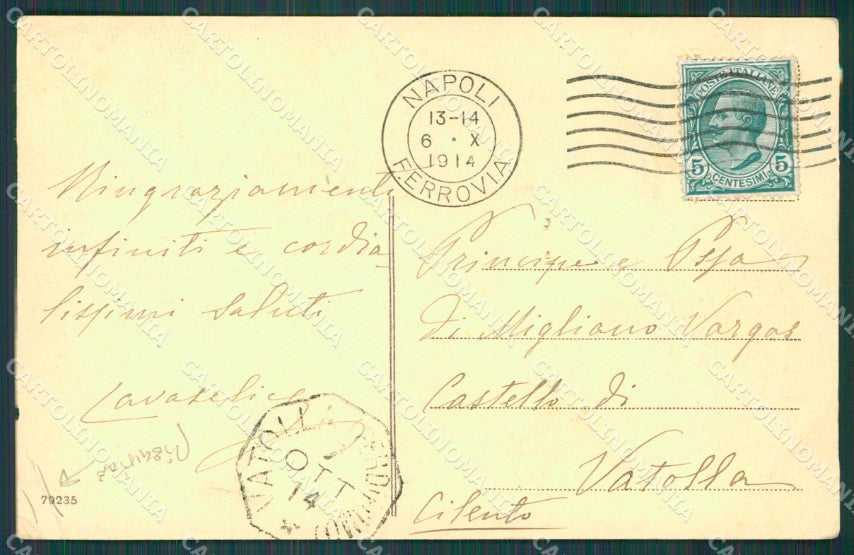 NAPOLI
13-14
6 · X
1914
FERROVIA
POSTE ITALIANE
5 5
CENTESIMI
Ringraziamenti
infiniti e cordia
lissimi saluti
Principe e Pssa
di Migliano Vargas
Castello di
Vatolla
Cilento
VATOLLA
OTT
14
79235
CARTOLINOMANIA